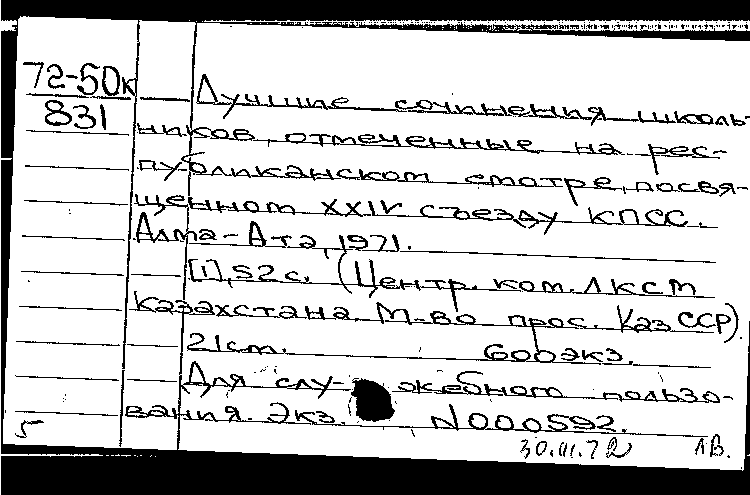 72-50к
831
Лучшие сочинения школь-
ников, отмеченные на рес-
публиканском смотре, посвя-
щенном XXIV съезду КПСС.
Алма-Ата, 1971.
[1], 52 с. (Центр. ком. ЛКСМ
Казахстана. М-во прос. Каз ССР)
21 см. 600 экз.
Для служебного пользо-
вания. Экз. N000592.
5
30.III.72 ЛВ.